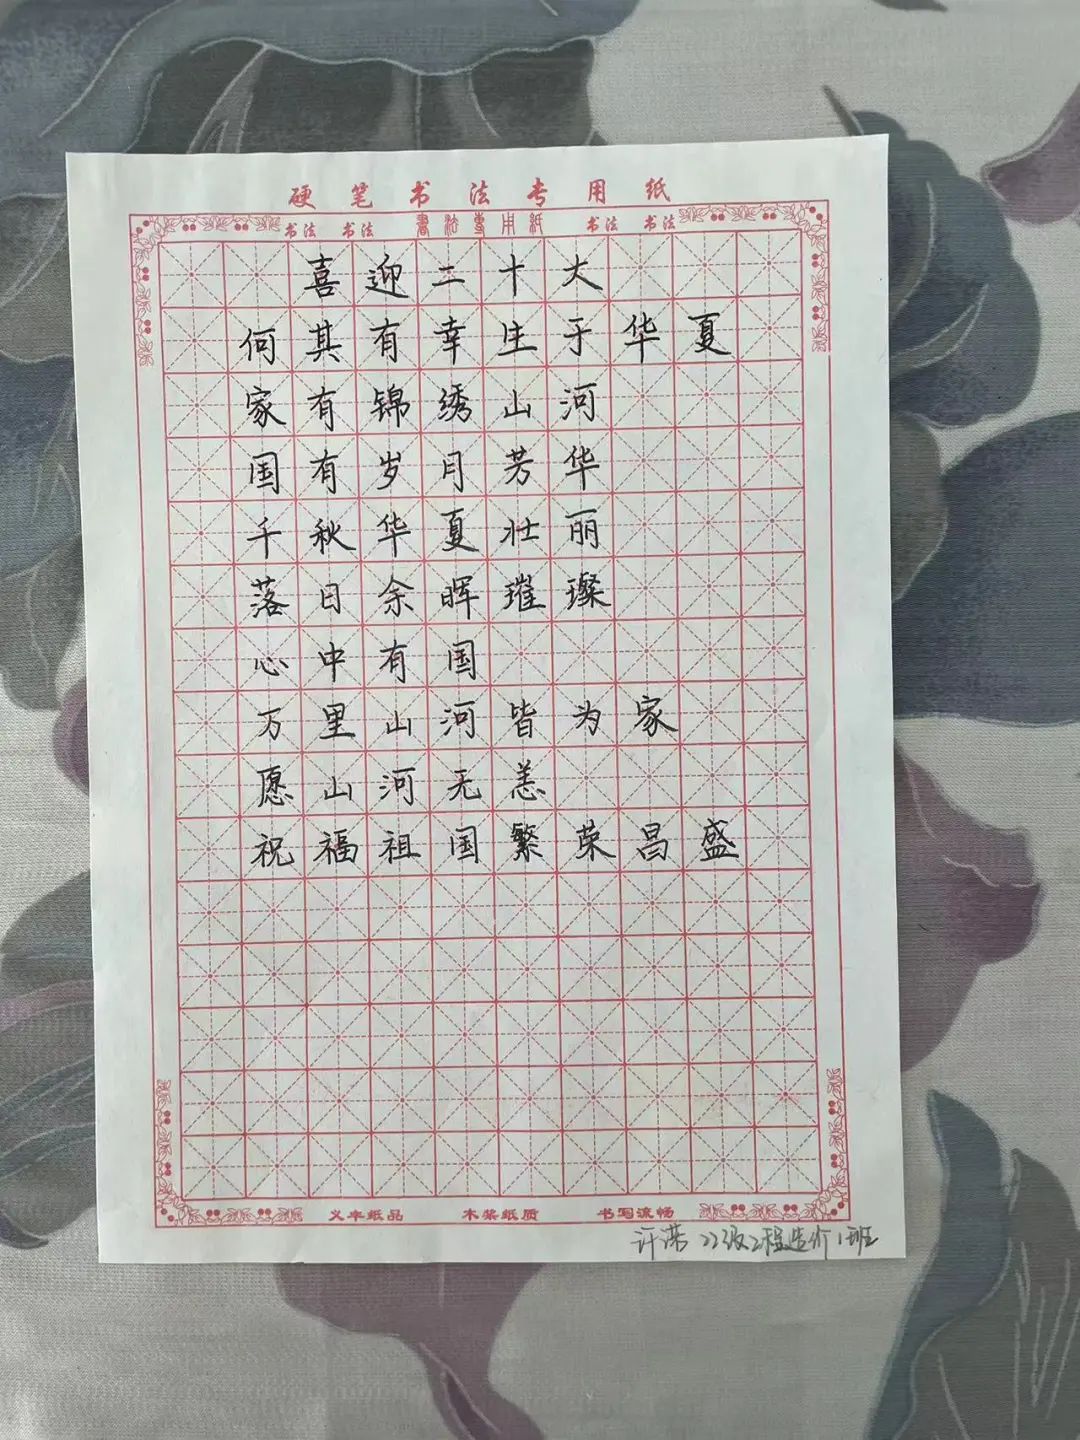 硬笔书法专用纸
书法 书法 書法專用紙 书法 书法
喜迎二十大
何其有幸生于华夏
家有锦绣山河
国有岁月芳华
千秋华夏壮丽
落日余晖璀璨
心中有国
万里山河皆为家
愿山河无恙
祝福祖国繁荣昌盛
义本纸品 木桨纸质 书写流畅
许 22级工程造价1班